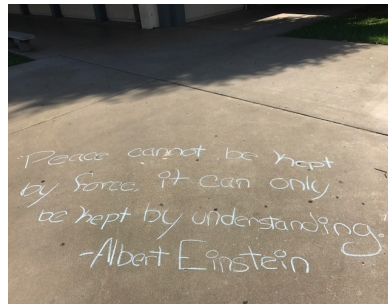 "Peace cannot be kept
by force, it can only
be kept by understanding."
-Albert Einstein